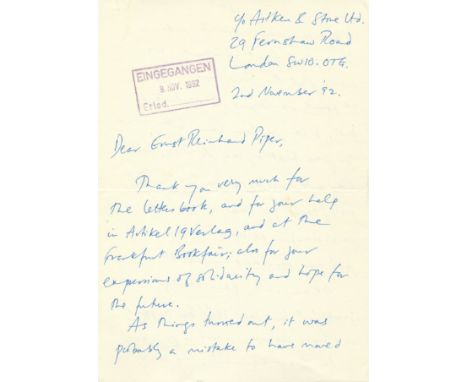 c/o Aitken & Stone Ltd.
29 Fernshaw Road
London SW10. OTG.
EINGEGANGEN
9. NOV. 1992
Erled.
2nd November '92.
Dear Ernst Reinhard Piper,
Thank you very much for
the letterbook, and for your help
in Artikel 19 Verlag, and at the
Frankfurt Bookfair; also for your
expressions of solidarity and hope for
the future.
As things turned out, it was
probably a mistake to have moved